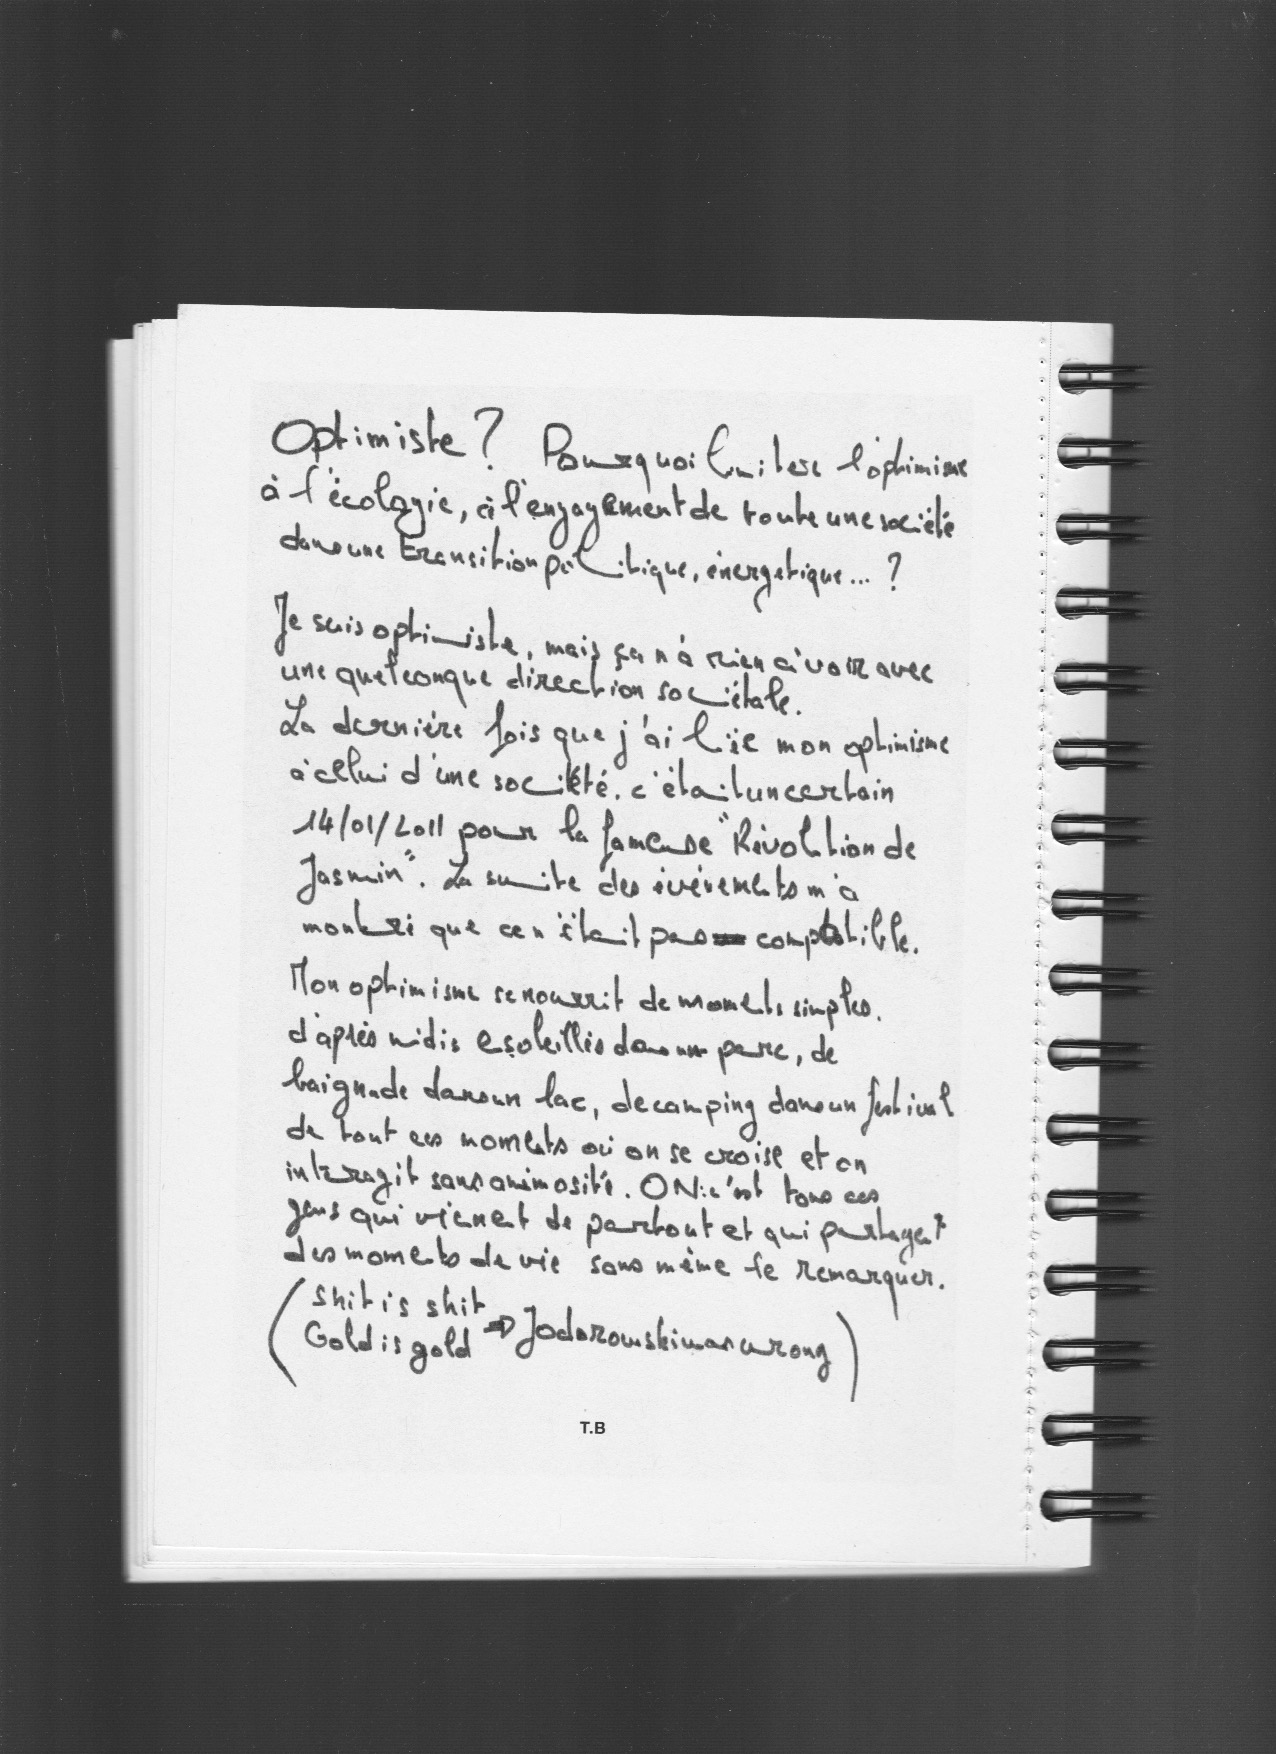 Optimiste? Pourquoi limiter l'optimisme
à l'écologie, à l'engagement de toute une société
dans une transition politique, énergétique... ?
Je suis optimiste, mais ça n'a rien à voir avec
une quelconque direction sociétale.
La dernière fois que j'ai liée mon optimisme
à celui d'une société. c'était un certain
14/01/2011 pour la fameuse "Révolution de
Jasmin". La suite des événements m'a
montré que ce n'était pas compatible.
Mon optimisme se nourrit de moments simples.
d'après midis esoleillés dans un parc, de
baignade dans un lac, de camping dans un festival
de tout ces moments où on se croise et on
interagit sans animosité. ON: c'est tous ces
gens qui viennent de partout et qui partagent
des moments de vie sans même le remarquer.
(Shit is shit
Gold is gold => Jodorowski was wrong)
T.B